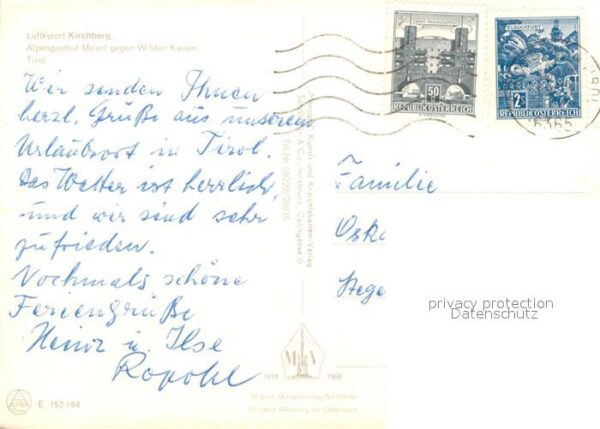 Luftkurort Kirchberg,
Alpengasthof Maierl gegen Wilden Kaiser,
Tirol
Wir senden Ihnen
herzl. Grüße aus unserem
Urlaubsort in Tirol.
Das Wetter ist herrlich
und wir sind sehr
zufrieden.
Nochmals schöne
Feriengrüße
Heinz u. Ilse
Ropohl
E 152 194
Kunst- und Ansichtskarten-Verlag
& Co., Innsbruck, Colingasse 6
Tel. Nr.
1918 1968
50 Jahre Werbung für Österreich
50
REPUBLIK ÖSTERREICH
KLAGENFURT
2
REPUBLIK ÖSTERREICH
6365
Familie
Oska
Hege
privacy protection
Datenschutz